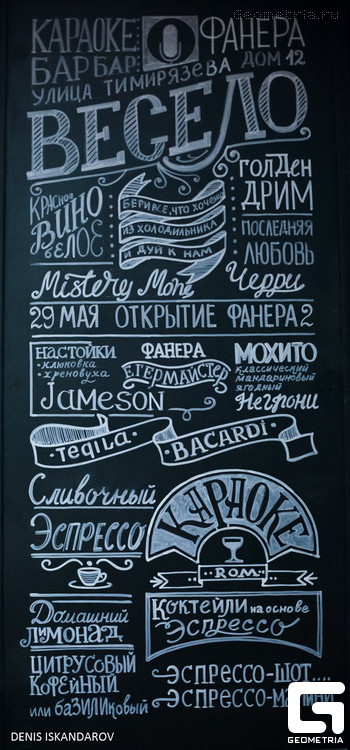 Geometria.ru
КАРАОКЕ ФАНЕРА
БАР БАР ДОМ 12
УЛИЦА ТИМИРЯЗЕВА
ВЕСЕЛО
КРАСНОЕ
ВИНО
БЕЛОЕ
БЕРИ ВСЁ, ЧТО ХОЧЕШЬ
ИЗ ХОЛОДИЛЬНИКА
И ДУЙ К НАМ
ГОЛДЕН
ДРИМ
ПОСЛЕДНЯЯ
ЛЮБОВЬ
Mistery Mone Черри
29 МАЯ ОТКРЫТИЕ ФАНЕРА 2
НАСТОЙКИ
• КЛЮКОВКА
• ХРЕНОВУХА
JAMESON
ФАНЕРА
ЕГЕРМАЙСТЕР
МОХИТО
классический
мандариновый
ягодный
Негрони
TEQUILA • BACARDI
Сливочный
Эспрессо
КАРАОКЕ
ROM
Домашний
ЛИМОНАД
ЦИТРУСОВЫЙ
КОФЕЙНЫЙ
или БАЗИЛИКОВЫЙ
КОКТЕЙЛИ НА ОСНОВЕ
Эспрессо
ЭСПРЕССО-ШОТ....
ЭСПРЕССО-МАРТИНИ
DENIS ISKANDAROV
GEOMETRIA